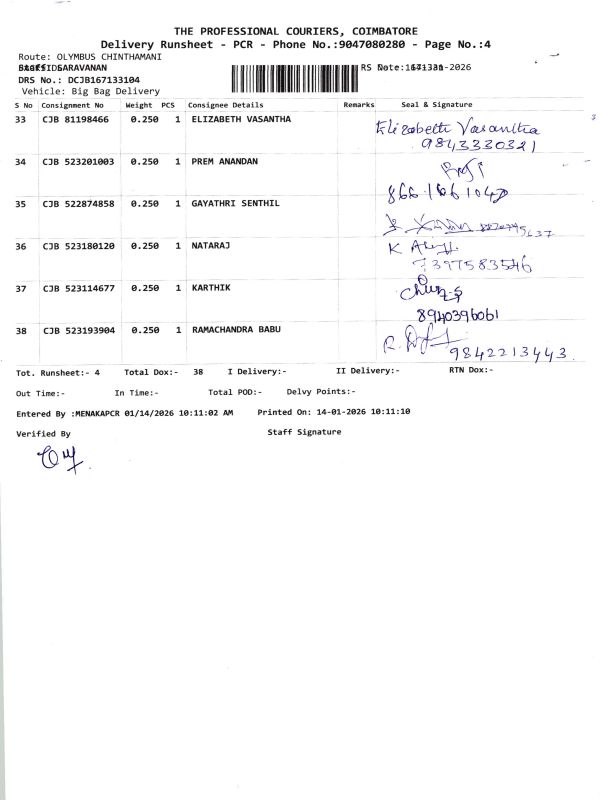 THE PROFESSIONAL COURIERS, COIMBATORE
Delivery Runsheet - PCR - Phone No.:9047080280 - Page No.:4
Route: OLYMBUS CHINTHAMANI
SARAVANAN
DRS No.: DCJB167133104
Vehicle: Big Bag Delivery
S No Consignment No Weight PCS Consignee Details Remarks Seal & Signature
33 CJB 81198466 0.250 1 ELIZABETH VASANTHA Elizabeth Vasantha
9843330321
34 CJB 523201003 0.250 1 PREM ANANDAN
35 CJB 522874858 0.250 1 GAYATHRI SENTHIL
36 CJB 523180120 0.250 1 NATARAJ K
7397583546
37 CJB 523114677 0.250 1 KARTHIK
8940396061
38 CJB 523193904 0.250 1 RAMACHANDRA BABU R.
9842213443
Tot. Runsheet:- 4 Total Dox:- 38 I Delivery:- II Delivery:- RTN Dox:-
Out Time:- In Time:- Total POD:- Delvy Points:-
Entered By :MENAKAPCR 01/14/2026 10:11:02 AM Printed On: 14-01-2026 10:11:10
Verified By Staff Signature